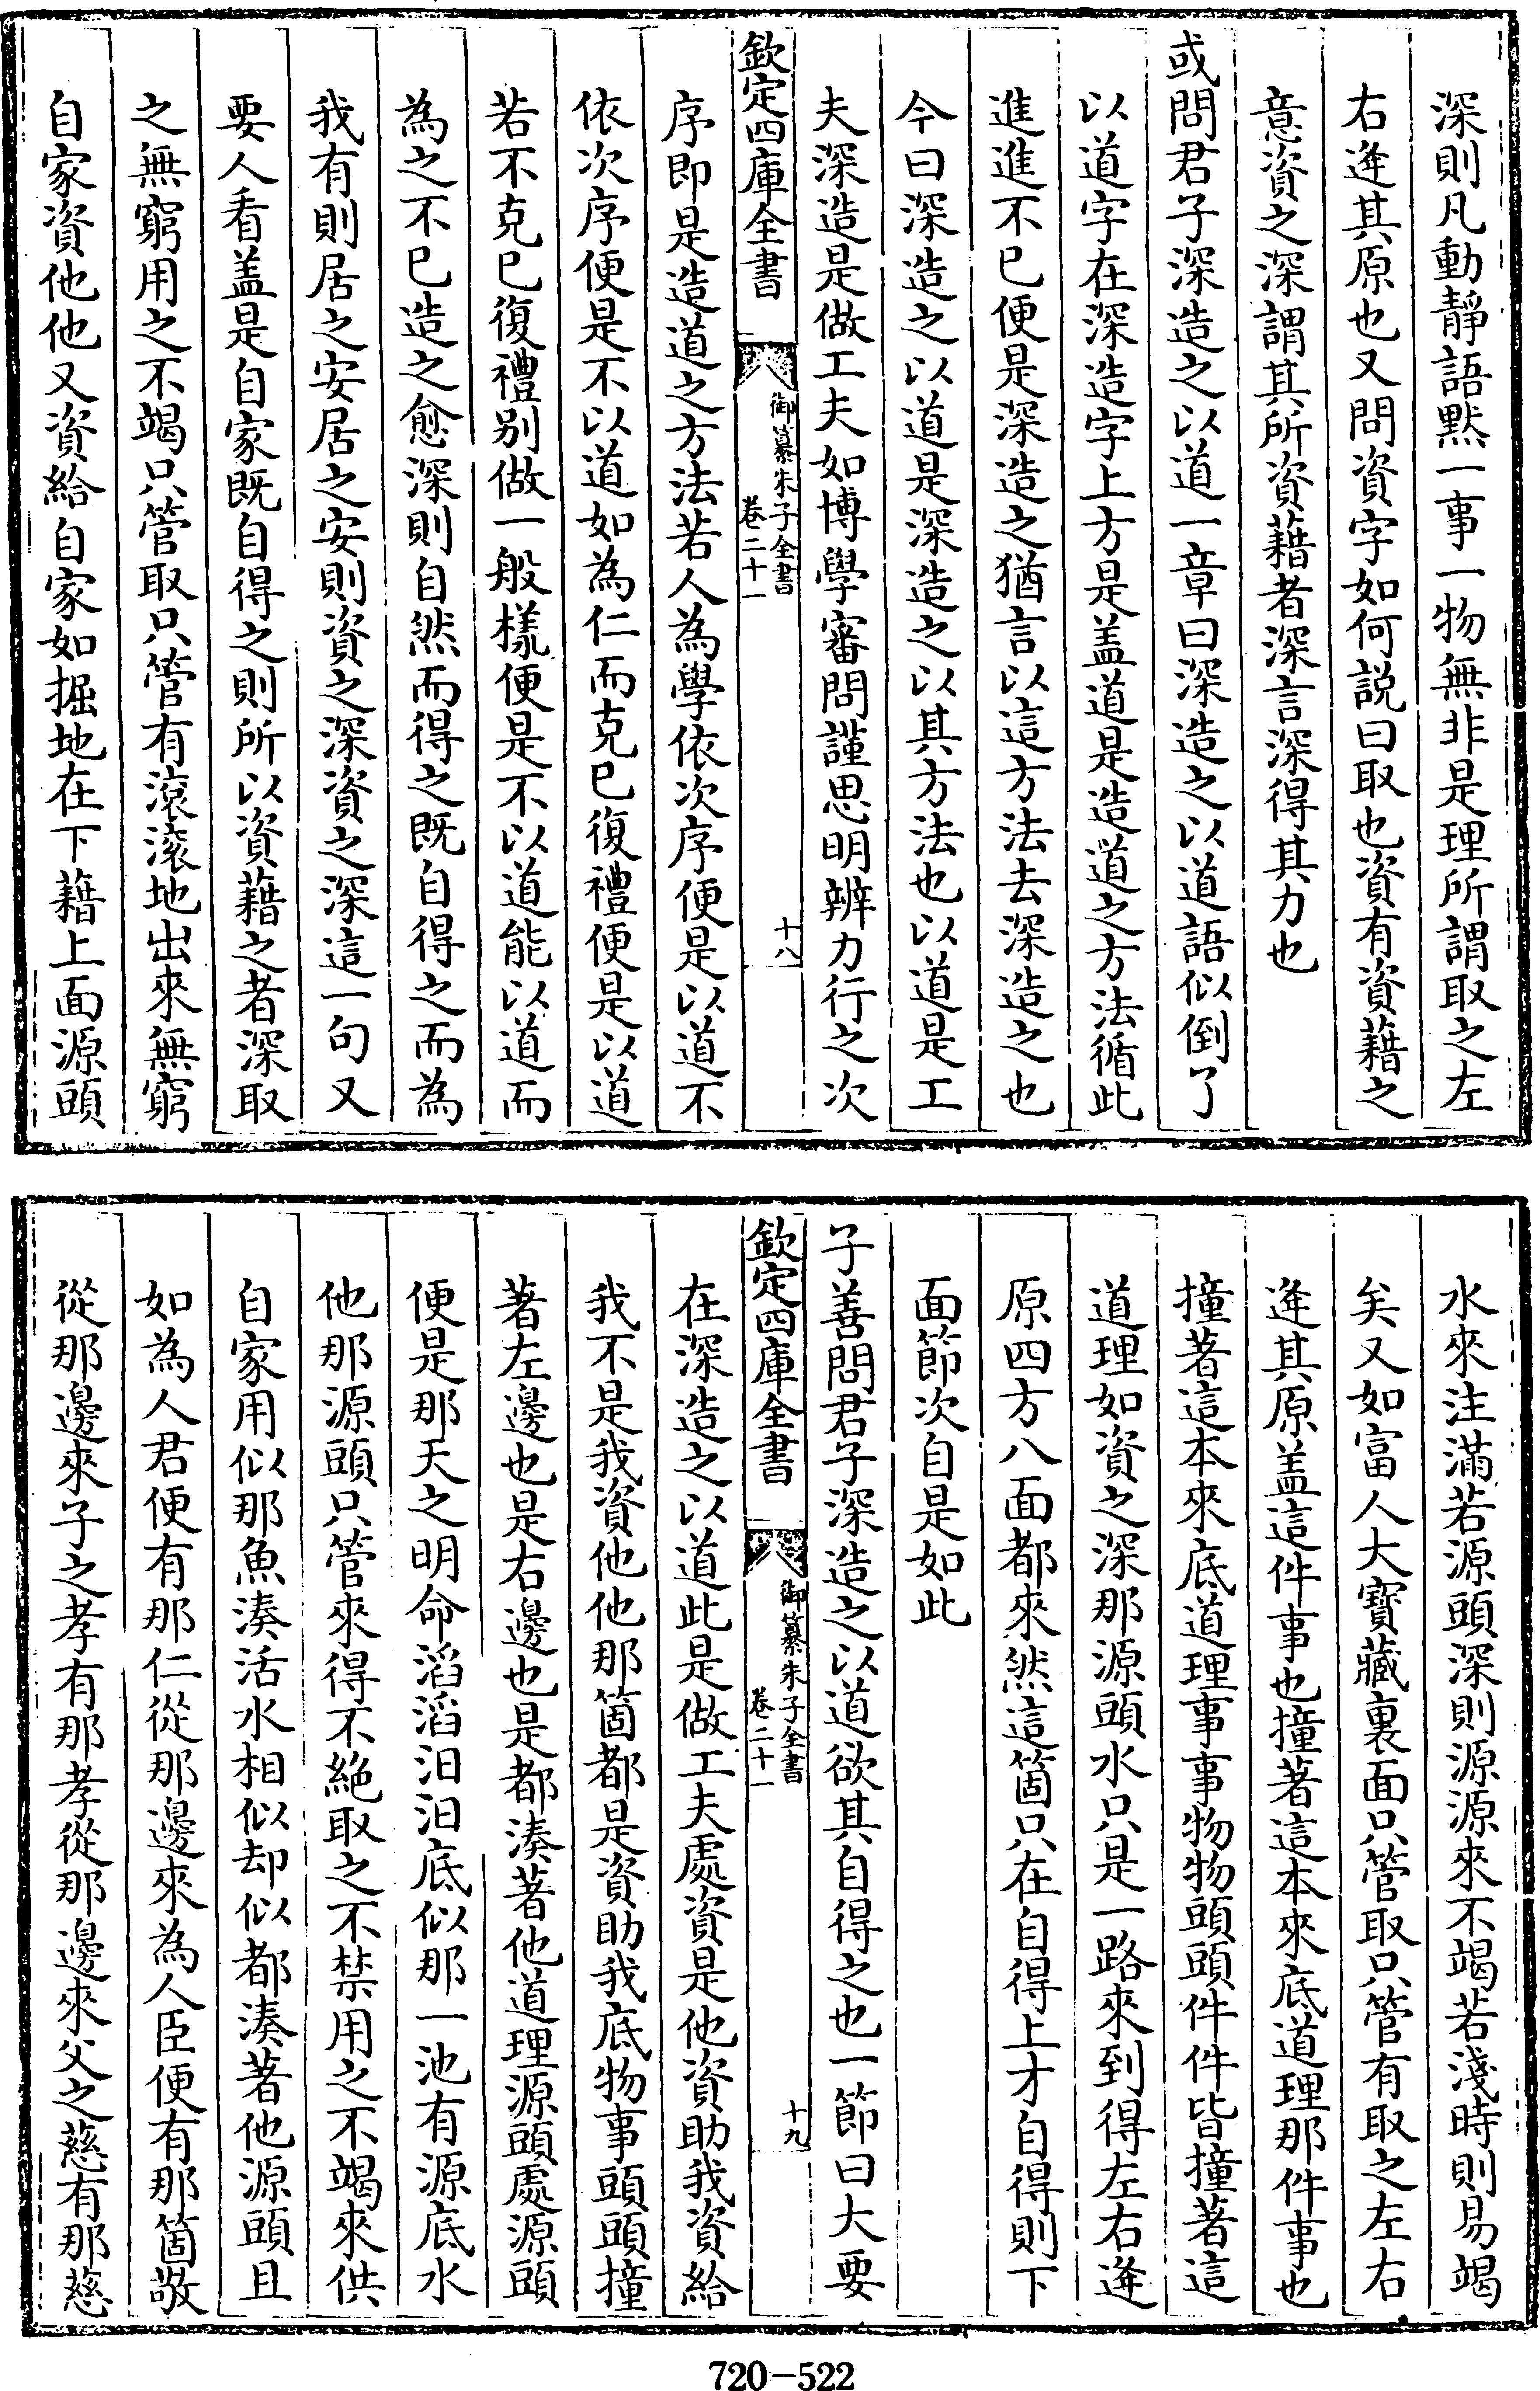 深則凡動靜語黙一事一物無非是理所謂取之左
右逄其原也又問資字如何説曰取也資有資藉之
意資之深謂其所資藉者深言深得其力也
或問君子深造之以道一章曰深造之以道語似倒了
以道字在深造字上方是盖道是造道之方法循此
進進不已便是深造之猶言以這方法去深造之也
今曰深造之以道是深造之以其方法也以道是工
夫深造是做工夫如博學審問謹思明辨力行之次
欽定四庫全書
御纂朱子全書
卷二十一
十八
序即是造道之方法若人為學依次序便是以道不
依次序便是不以道如為仁而克已復禮便是以道
若不克已復禮别做一般様便是不以道能以道而
為之不已造之愈深則自然而得之既自得之而為
我有則居之安居之安則資之深資之深這一句又
要人看盖是自家既自得之則所以資藉之者深取
之無窮用之不竭只管取只管有滾滾地出來無窮
自家資他他又資給自家如掘地在下藉上面源頭
水來注滿若源頭深則源源來不竭若淺時則易竭
矣又如富人大寶藏裏面只管取只管有取之左右
逄其原盖這件事也撞著這本來底道理那件事也
撞著這本來底道理事事物物頭頭件件皆撞著這
道理如資之深那源頭水只是一路來到得左右逄
原四方八面都來然這箇只在自得上才自得則下
面節次自是如此
子善問君子深造之以道欲其自得之也一節曰大要
欽定四庫全書
御纂朱子全書
卷二十一
十九
在深造之以道此是做工夫處資是他資助我資給
我不是我資他他那箇都是資助我底物事頭頭撞
著左邊也是右邊也是都湊著他道理源頭處源頭
便是那天之明命滔滔汩汩底似那一池有源底水
他那源頭只管來得不絶取之不禁用之不竭來供
自家用似那魚湊活水相似却似都湊著他源頭且
如為人君便有那仁從那邊來為人臣便有那箇敬
從那邊來子之孝有那孝從那邊來父之慈有那慈
720-522